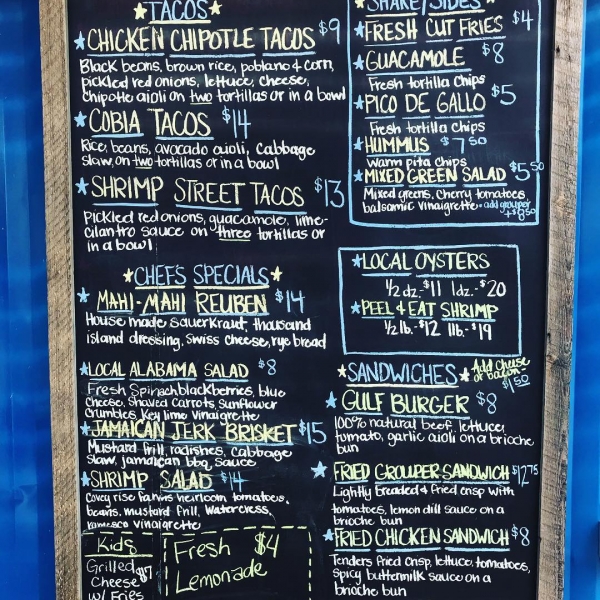 TACOS
CHICKEN CHIPOTLE TACOS $9
Black beans, brown rice, poblano & corn,
pickled red onions, lettuce, cheese,
Chipotle aioli on two tortillas or in a bowl
COBIA TACOS $14
Rice, beans, avocado aioli, Cabbage
slaw, on two tortillas or in a bowl
SHRIMP STREET TACOS $13
Pickled red onions, guacamole, lime-
cilantro sauce on three tortillas or
in a bowl
CHEF'S SPECIALS
MAHI-MAHI REUBEN $14
House made sauerkraut, thousand
island dressing, Swiss cheese, rye bread
LOCAL ALABAMA SALAD $8
Fresh Spinach blackberries, blue
Cheese, Shaved Carrots, Sunflower
Crumbles, Key lime Vinaigrette
JAMAICAN JERK BRISKET $15
Mustard frill, radishes, Cabbage
Slaw, jamaican bbq sauce
SHRIMP SALAD $14
Covey rise farms heirloom tomatoes,
beans, mustard frill, watercress,
vinaigrette
Kids
Grilled
Cheese $7
w/ Fries
Fresh $4
Lemonade
SHARE/SIDES
FRESH CUT FRIES $4
GUACAMOLE $8
Fresh tortilla Chips
PICO DE GALLO $5
Fresh tortilla chips
HUMMUS $7.50
Warm pita Chips
MIXED GREEN SALAD $5.50
Mixed greens, Cherry tomatoes
balsamic vinaigrette - add grouper
+$8.50
LOCAL OYSTERS
1/2 dz.-$11 1dz.-$20
PEEL & EAT SHRIMP
1/2 lb.-$12 1lb.-$19
SANDWICHES Add cheese
or bacon-
$1.50
GULF BURGER $8
100% natural beef, lettuce,
tomato, garlic aioli on a brioche
bun
FRIED GROUPER SANDWICH $12.75
Lightly breaded & fried crisp with
tomatoes, lemon dill sauce on a
brioche bun
FRIED CHICKEN SANDWICH $8
Tenders fried crisp, lettuce, tomatoes,
spicy buttermilk sauce on a
brioche bun